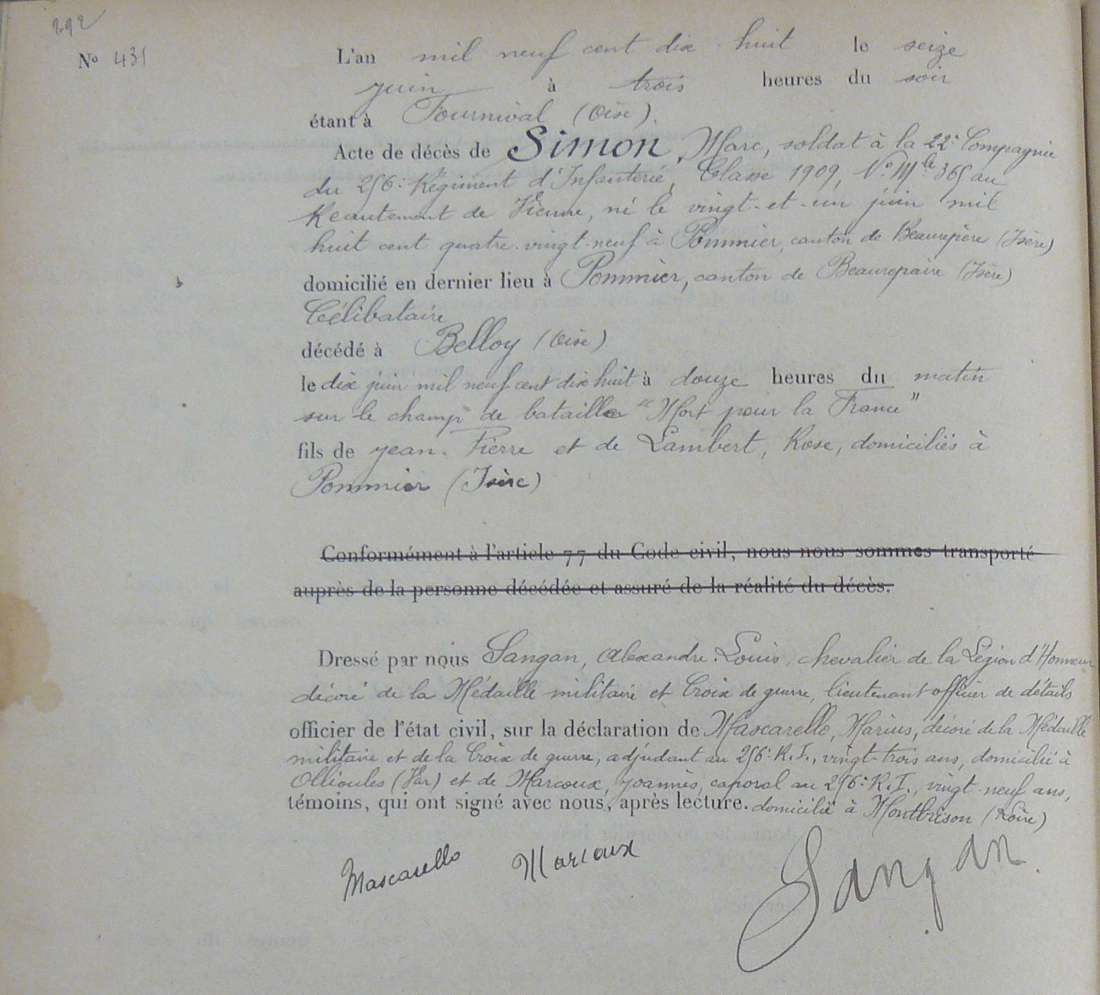 292
N° 431
L'an mil neuf cent dix huit le seize
juin à trois heures du soir
étant à Fournival (Oise).
Acte de décès de Simon, Marc, soldat à la 22e Compagnie
du 256e Régiment d'Infanterie, Classe 1909, N° Mle 365 au
Recrutement de Vienne, né le vingt-et-un juin mil
huit cent quatre-vingt-neuf à Pommier, canton de Beaurepère (Isère)
domicilié en dernier lieu à Pommier, canton de Beaurepaire (Isère)
Célibataire
décédé à Belloy (Oise)
le dix juin mil neuf cent dix huit à douze heures du matin
sur le champ de bataille "Mort pour la France"
fils de Jean-Pierre et de Lambert, Rose, domiciliés à
Pommier (Isère)
Conformément à l'article 77 du Code civil, nous nous sommes transporté
auprès de la personne décédée et assuré de la réalité du décès.
Dressé par nous Sangan, Alexandre-Louis, chevalier de la Légion d'Honneur
décoré de la Médaille militaire et Croix de guerre, lieutenant officier de détails
officier de l'état civil, sur la déclaration de Mascarello, Marius, décoré de la Médaille
militaire et de la Croix de guerre, adjudant au 256e R.I., vingt-trois ans, domicilié à
Ollioules (Var) et de Marcoux, Joannès, caporal au 256e R.I., vingt-neuf ans,
témoins, qui ont signé avec nous, après lecture. domicilié à Montbrison (Loire)
Mascarello Marcoux Sangan